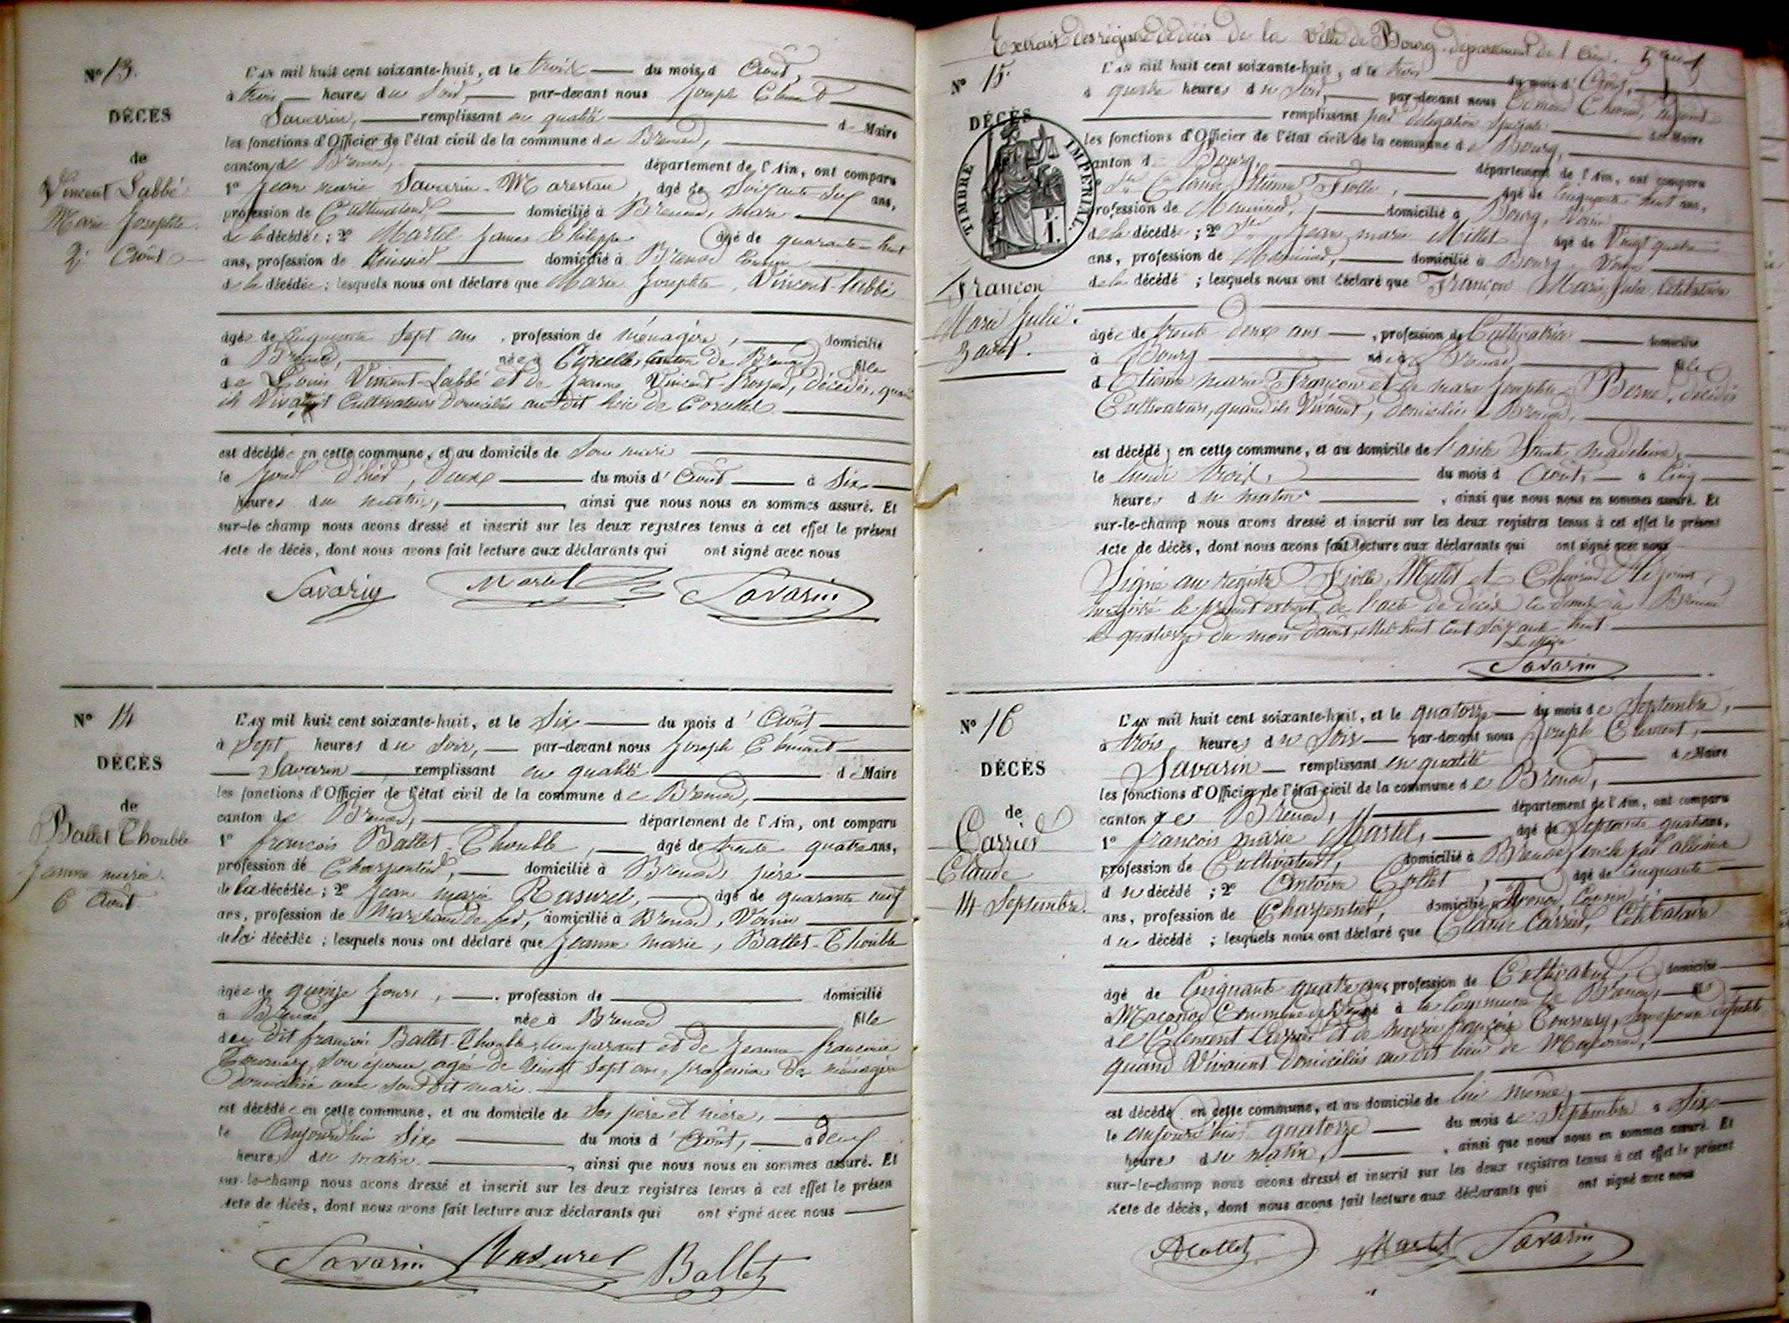 N° 13.
DÉCÈS
de
Vincent Labbé
Marie Josephte
2 Août
L'AN mil huit cent soixante-huit, et le trois du mois d'Août,
à trois heures du soir, par-devant nous Joseph Clément
Savarin, remplissant en qualité de Maire
les fonctions d'Officier de l'état civil de la commune de Brénod,
canton de Brénod, département de l'Ain, ont comparu
1° Jean marie Savarin-Marestan, âgé de soixante six ans,
profession de Cultivateur, domicilié à Brénod, mari
de la décédée ; 2° Martel James Philippe âgé de quarante-huit
ans, profession de domicilié à Brénod
de la décédée ; lesquels nous ont déclaré que Marie Josephte, Vincent-Labbé
âgée de cinquante sept ans, profession de ménagère, domiciliée
à Brénod, née à Corcelles, canton de Brénod fille
de Louis Vincent-Labbé et de Jeanne Vincent- décédés, quand
ils vivaient cultivateurs domiciliés au dit lieu de Corcelles
est décédée en cette commune, et au domicile de son mari
le jour d'hier, deux du mois d'Août à six
heures du matin, ainsi que nous nous en sommes assuré. Et
sur-le-champ nous avons dressé et inscrit sur les deux registres tenus à cet effet le présent
Acte de décès, dont nous avons fait lecture aux déclarants qui ont signé avec nous
Savarin Martel Savarin
N° 14
DÉCÈS
de
Ballet Thouble
Jeanne marie
6 Août
L'AN mil huit cent soixante-huit, et le six du mois d'Août
à sept heures du soir, par-devant nous Joseph Clément
Savarin, remplissant en qualité de Maire
les fonctions d'Officier de l'état civil de la commune de Brénod,
canton de Brénod, département de l'Ain, ont comparu
1° françois Ballet-Thouble, âgé de trente quatre ans,
profession de Charpentier, domicilié à Brénod, père
de la décédée ; 2° Jean marie Rasurel, âgé de quarante neuf
ans, profession de Marchand de fer, domicilié à Brénod, voisin
de la décédée ; lesquels nous ont déclaré que Jeanne marie, Ballet-Thouble
âgée de quinze jours, profession de domicilié
à Brénod née à Brénod fille
du dit françois Ballet-Thouble, comparant et de Jeanne françoise
Tournier, son épouse, agée de vingt sept ans, profession de ménagère
domiciliée avec son dit mari.
est décédée en cette commune, et au domicile de ses père et mère,
le aujourd'hui six du mois d'Août, à deux
heures du matin, ainsi que nous nous en sommes assuré. Et
sur-le-champ nous avons dressé et inscrit sur les deux registres tenus à cet effet le présen
Acte de décès, dont nous avons fait lecture aux déclarants qui ont signé avec nous
Savarin Rasurel Ballet
Extrait des registres de décès de la Ville de Bourg, département de l'Ain.
N° 15.
DÉCÈS
TIMBRE IMPÉRIAL
1 F.
Françon
Marie Julie.
3 août.
L'AN mil huit cent soixante-huit, et le trois du mois d'Août,
à quatre heures du soir, par-devant nous
remplissant par délégation spéciale de Maire
les fonctions d'Officier de l'état civil de la commune de Bourg,
canton de Bourg, département de l'Ain, ont comparu
Fiolle, âgé de cinquante huit ans,
profession de Menuisier, domicilié à Bourg, voisin
de la décédée ; 2° Jean marie Millet âgé de vingt quatre
ans, profession de Menuisier, domicilié à Bourg, voisin
de la décédé ; lesquels nous ont déclaré que Françon Marie Julie Célibataire
âgée de trente deux ans, profession de Cultivatrice domicilié
à Bourg née à Brénod fille
d'Etienne marie Françon et de marie Josephte Berne, décédés
Cultivateurs, quand ils vivaient, domiciliés à Brénod.
est décédé, en cette commune, et au domicile de l'asile Sainte Madeleine,
le lundi trois, du mois d'Août, à cinq
heures du matin, ainsi que nous nous en sommes assuré. Et
sur-le-champ nous avons dressé et inscrit sur les deux registres tenus à cet effet le présent
Acte de décès, dont nous avons fait lecture aux déclarants qui ont signé avec nous
Signé au registre Fiolle, Millet et
le présent extrait de l'acte de décès à Brénod
le quatorze du mois d'août, mil huit cent soixante huit.
Le Maire
Savarin
N° 16
DÉCÈS
de
Carrier
Claude
14 Septembre.
L'AN mil huit cent soixante-huit, et le quatorze du mois de Septembre,
à trois heures du soir par-devant nous Joseph Clément,
Savarin remplissant en qualité de Maire
les fonctions d'Officier de l'état civil de la commune de Brénod,
canton de Brénod, département de l'Ain, ont comparu
1° françois marie Martel, âgé de septante quatre ans,
profession de Cultivateur, domicilié à Brénod, oncle par alliance
du décédé ; 2° Antoine Collet, âgé de cinquante
ans, profession de Charpentier, domicilié à Brénod, Cousin
du décédé ; lesquels nous ont déclaré que Claude Carrier, Célibataire
âgé de cinquante quatre ans, profession de Cultivateur, domicilié
à Macconod Commune de Brénod né à la Commune de Brénod, fils
de Clément Carrier et de marie françoise Tournier,
quand vivaient domiciliés au dit lieu de
est décédé en cette commune, et au domicile de lui même,
le aujourd'hui quatorze du mois de Septembre à six
heures du matin, ainsi que nous nous en sommes assuré. Et
sur-le-champ nous avons dressé et inscrit sur les deux registres tenus à cet effet le présent
Acte de décès, dont nous avons fait lecture aux déclarants qui ont signé avec nous
ACollet Martel Savarin